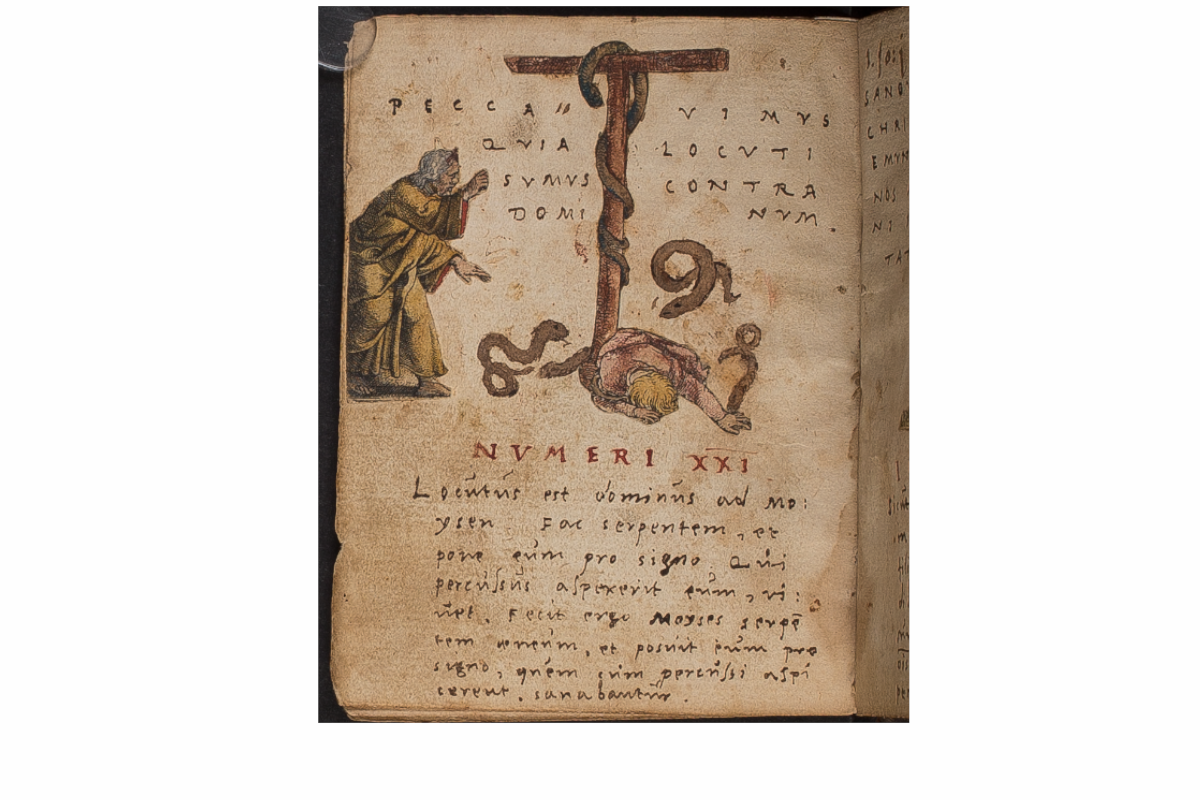 PECCA〃 VIMVS
QVIA LOCVTI
SVMVS CONTRA
DOMI NVM.
NVMERI XXI
Locutus est dominus ad Mo:
ysen Fac serpentem, et
pone eum pro signo. Qui
percussus aspexerit eum, vi:
uet. Fecit ergo Moyses serpē
tem æneum, et posuit eum pro
signo, quem cum percussi aspi
cerent, sanabantur.
SANC
CHRI
EMVN
NOS
NI
TAT